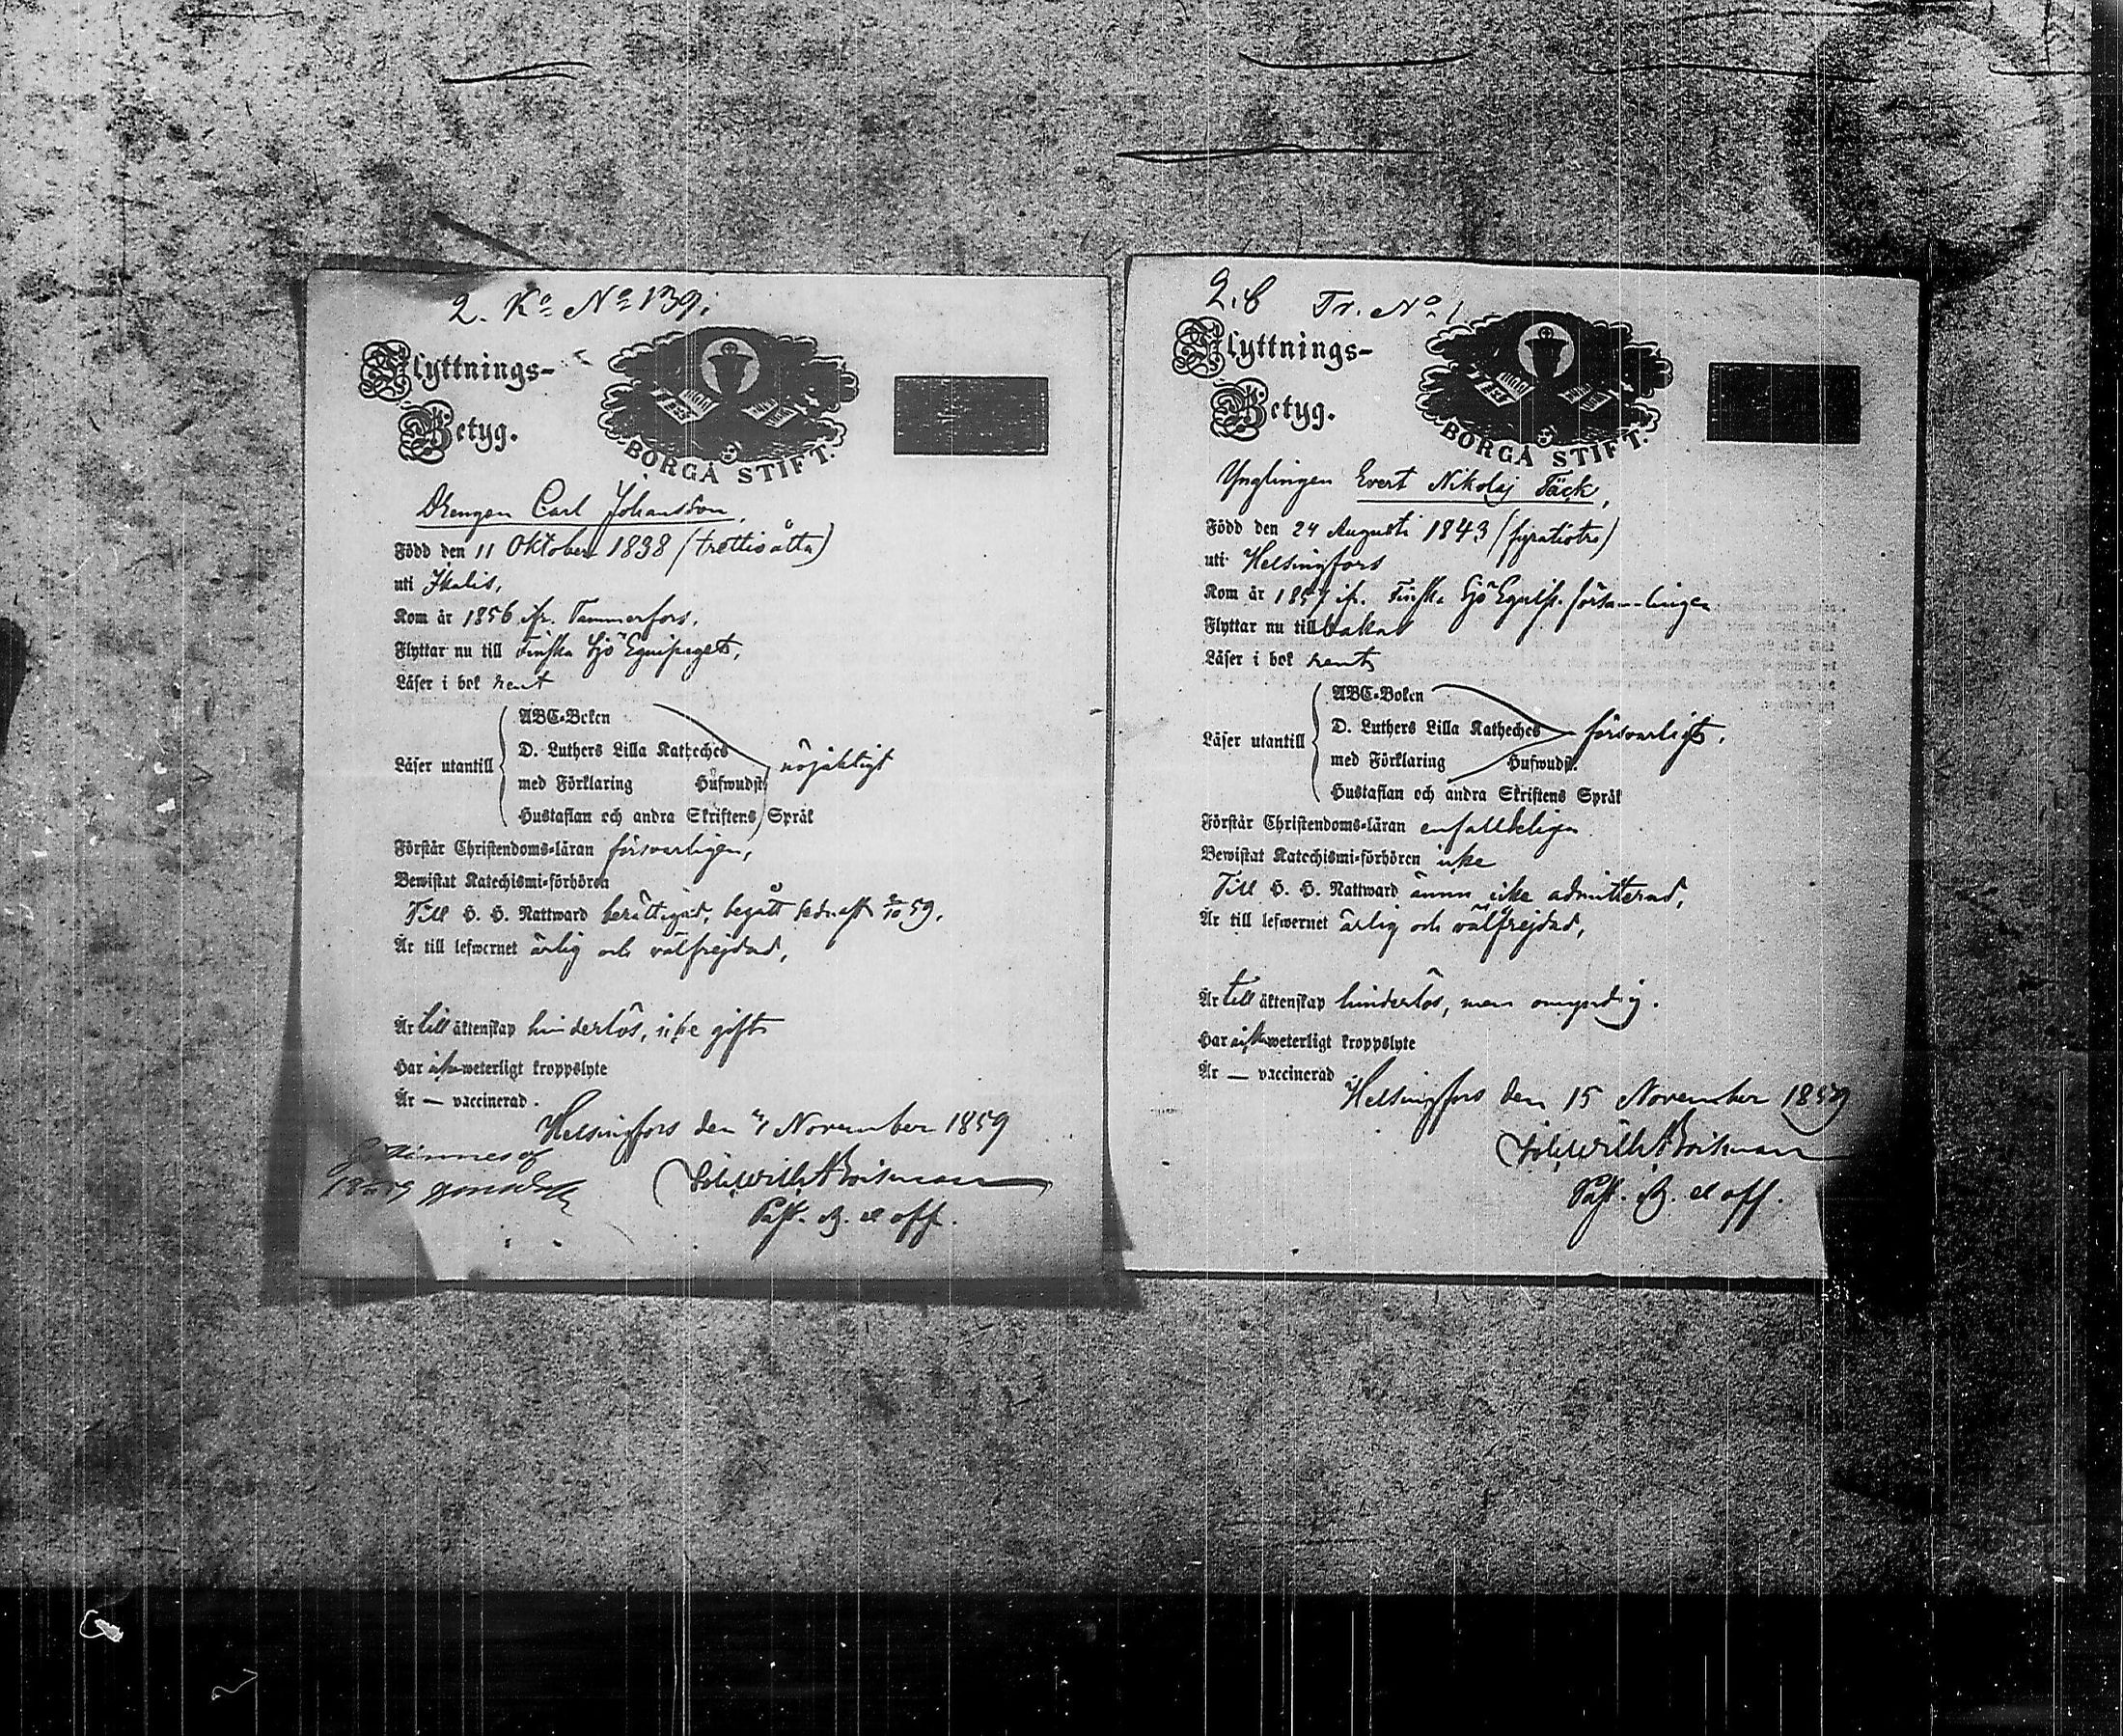 2. Ko No 139.
Flyttnings-
Betyg.
BORGÅ STIFT.
Drengen Carl Johansson,
Född den 11 Oktober 1838 (trettioåtta)
uti Ikalis,
Kom år 1856 ifr. Tammerfors,
Flyttar nu till Finska Sjö Equipaget,
Läser i bok rent
Läser utantill
ABC-Boken
D. Luthers Lilla Katheches
med Förklaring Hufwudst.
Hustaflan och andra Skriftens Språk
nöjaktigt
Förstår Christendoms-läran försvarligen,
Bewistat Katechismi-förhören
Till H. H. Nattward berättigad, begått sednast 59.
Är till lefwernet ärlig och välfrejdad,
Är till äktenskap hinderlös, icke gift
Har icke weterligt kroppslyte
Är — vaccinerad.
Helsingfors den November 1859
Past. et off.
2. C Tr. No 1
Flyttnings-
Betyg.
BORGÅ STIFT.
Ynglingen Evert Nikolaj Täck,
Född den 24 Augusti 1843 (fyratiotre)
uti Helsingfors
Kom år 1857 ifr. Finska Sjö Equip. församlingen
Flyttar nu tillbakas
Läser i bok rent
Läser utantill
ABC-Boken
D. Luthers Lilla Katheches
med Förklaring Hufwudst.
Hustaflan och andra Skriftens Språk
försvarligt,
Förstår Christendoms-läran enfaldeligen
Bewistat Katechismi-förhören icke
Till H. H. Nattward ännu icke admitterad,
Är till lefwernet ärlig och välfrejdad,
Är till äktenskap hinderlös, men omyndig.
Har icke weterligt kroppslyte
Är — vaccinerad
Helsingfors den 15 November 1859
Past. et off.